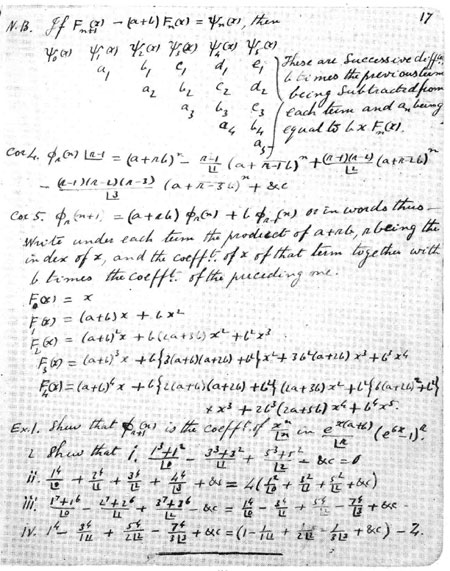 17
N.B. If F_{n+1}(x) - (a+b) F_n(x) = ψ_n(x), then
ψ_0(x) ψ_1(x) ψ_2(x) ψ_3(x) ψ_4(x) ψ_5(x)
a_1 b_1 c_1 d_1 e_1 These are successive diff^{ces}
a_2 b_2 c_2 d_2 b times the previous term
a_3 b_3 c_3 being subtracted from
a_4 b_4 each term and a_n being
a_5 equal to b x F_n(x).
Cor 4. φ_r(n) |r-1 = (a+rb)^n - (r-1)/|1 (a+r-1 b)^n + (r-1)(r-2)/|2 (a+r-2b)^n
- (r-1)(r-2)(r-3)/|3 (a+r-3b)^n + &c
Cor 5. φ_r(n+1) = (a+rb) φ_r(n) + b φ_{r-1}(n) or in words thus —
Write under each term the product of a+rb, r being the
index of x, and the coefft. of x of that term together with
b times the coefft. of the preceding one.
F_0(x) = x
F_1(x) = (a+b)x + bx^2
F_2(x) = (a+b)^2 x + b(2a+3b) x^2 + b^2 x^3
F_3(x) = (a+b)^3 x + b{3(a+b)(a+2b)+b^2}x^2 + 3b^2(a+2b) x^3 + b^3 x^4
F_4(x) = (a+b)^4 x + b{2(a+b)(a+2b)+b^2}(2a+3b) x^2 + b^2{6(a+2b)^2+b^2}
× x^3 + 2b^3(2a+5b) x^4 + b^4 x^5.
Ex.1. Shew that φ_{r+1}(n) is the coefft. of x^n/|n in e^{x(a+b)}/|r (e^{bx}-1)^r.
2 Shew that i. 1^3+1^2/|0 - 3^3+3^2/|1 + 5^3+5^2/|2 - &c = 0
ii. 1^4/|0 + 2^4/|1 + 3^4/|2 + 4^4/|3 + &c = 4(1^2/|0 + 3^2/|1 + 5^2/|2 + &c)
iii. 1^7+1^6/|0 - 2^7+2^6/|1 + 3^7+3^6/|2 - &c = 1^4/|0 - 3^4/|1 + 5^4/|2 - 7^4/|3 + &c